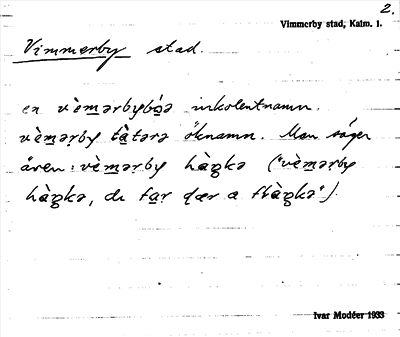 2.
Vimmerby stad, Kalm. l.
Vimmerby stad.
en vèm̲ərbybóə inkolentnamn.
vèm̲ərby tàtərə öknamn. Man säger
även: vèm̲ərby hàŋkə ("vèm̲ərby
hàŋkə, di far dær a flàŋkə").
Ivar Modéer 1933